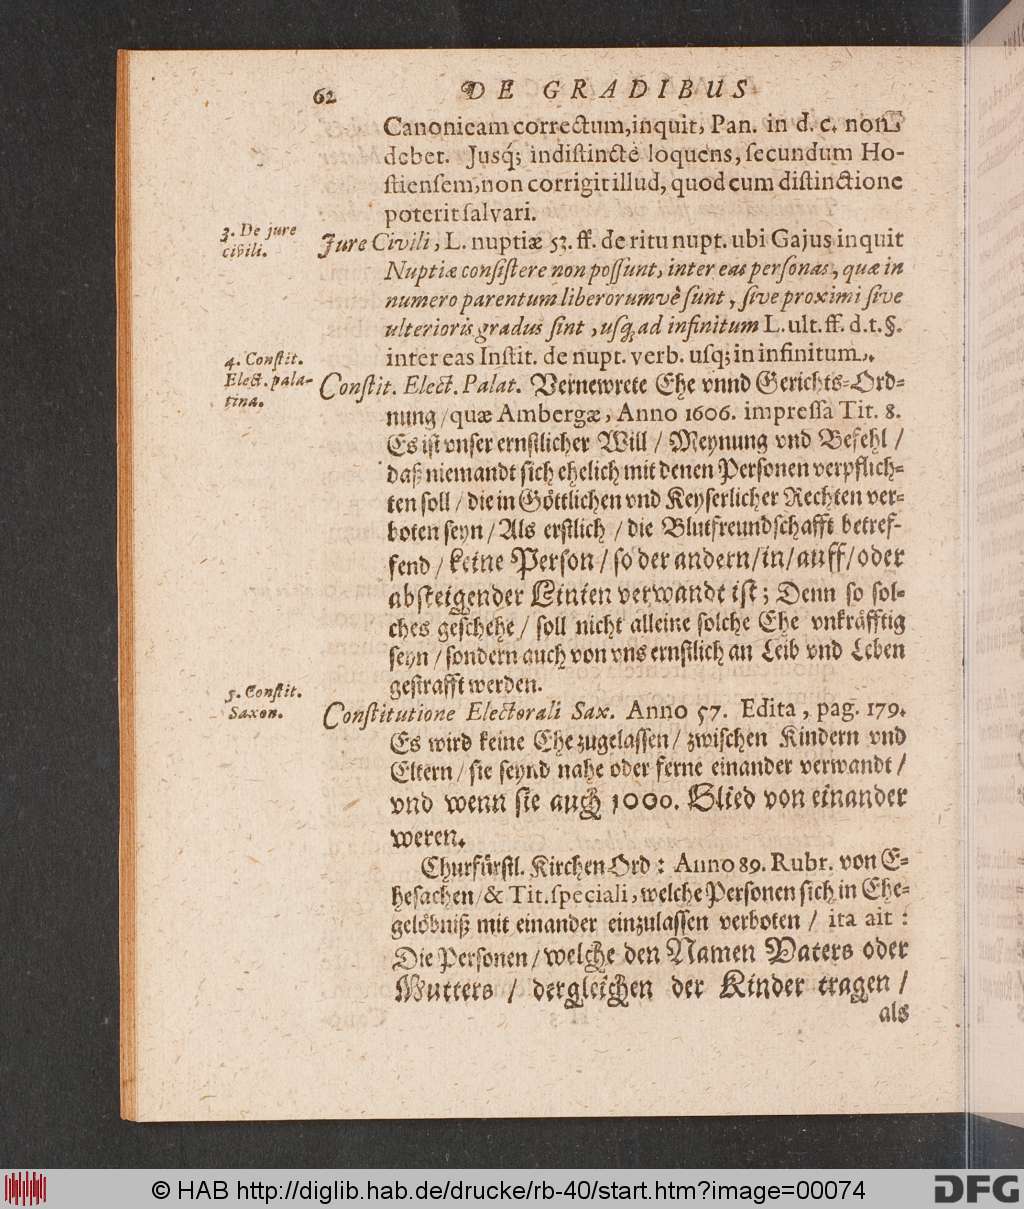 62 DE GRADIBUS
Canonicam correctum, inquit, Pan. in d. c. non
debet. Jusq́; indistinctè loquens, secundum Ho-
stiensem, non corrigit illud, quod cum distinctione
poterit salvari.
3. De jure
civili.
Jure Civili, L. nuptiæ 53. ff. de ritu nupt. ubi Gajus inquit
Nuptiæ consistere non possunt, inter eas personas, quæ in
numero parentum liberorumvè sunt, sive proximi sive
ulterioris gradus sint, usq; ad infinitum L. ult. ff. d. t. §.
inter eas Instit. de nupt. verb. usq; in infinitum.
4. Constit.
Elect. pala-
tina.
Constit. Elect. Palat. Vernewrete Ehe vnnd Gerichts-Ord-
nung / quæ Ambergæ, Anno 1606. impressa Tit. 8.
Es ist vnser ernstlicher Will / Meynung vnd Befehl /
daß niemandt sich ehelich mit denen Personen verpflich-
ten soll / die in Göttlichen vnd Keyserlicher Rechten ver-
boten seyn / Als erstlich / die Blutfreundschafft betref-
fend / keine Person / so der andern / in / auff / oder
absteigender Linien verwandt ist; Denn so sol-
ches geschehe / soll nicht alleine solche Ehe vnkräfftig
seyn / sondern auch von vns ernstlich an Leib vnd Leben
gestrafft werden.
5. Constit.
Saxon.
Constitutione Electorali Sax. Anno 57. Edita, pag. 179.
Es wird keine Ehe zugelassen / zwischen Kindern vnd
Eltern / sie seynd nahe oder ferne einander verwandt /
vnd wenn sie auch 1000. Glied von einander
weren.
Churfürstl. Kirchen-Ord: Anno 89. Rubr. von E-
hesachen / & Tit. speciali, welche Personen sich in Ehe-
gelöbniß mit einander einzulassen verboten / ita ait:
Die Personen / welche den Namen Vaters oder
Mutters / dergleichen der Kinder tragen /
als
© HAB http://diglib.hab.de/drucke/rb-40/start.htm?image=00074
DFG